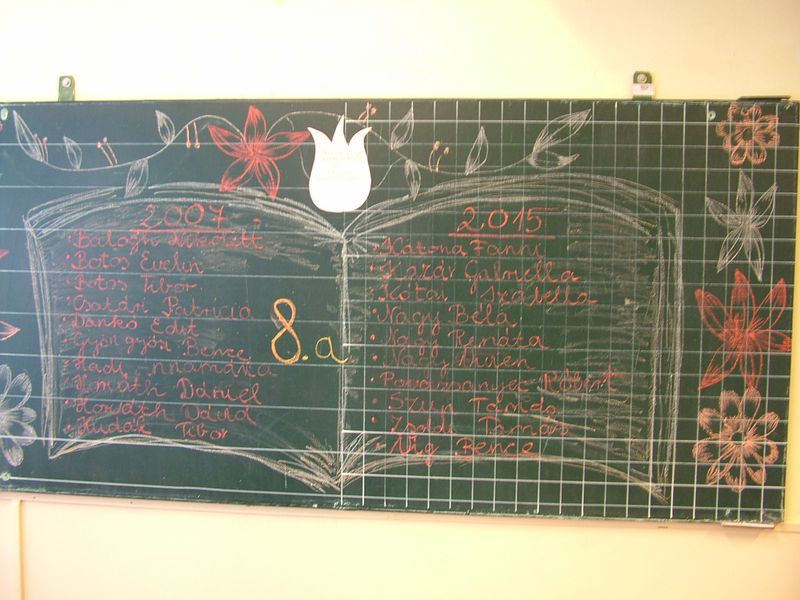 2007
Balogh Nikolett
Botos Evelin
Botos Tibor
Csatári Patrícia
Dankó Edit
Gyöngyösi Bence
Hadi Annamária
Horváth Dániel
Horváth Dávid
Hudák Tibor
8.a
2015
Katona Fanni
Kozdi Gabriella
Kótai Izabella
Nagy Béla
Nagy Renáta
Nagy
Róbert
Tamás
Zsoldi Tamás
Víg Bence